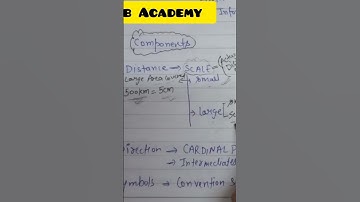 B ACADEMY
Components
Distance → SCALE
Large Area covered
small
500km = 5cm
Large
irection → CARDINAL P
→ Intermediate
ymbols → Convention S